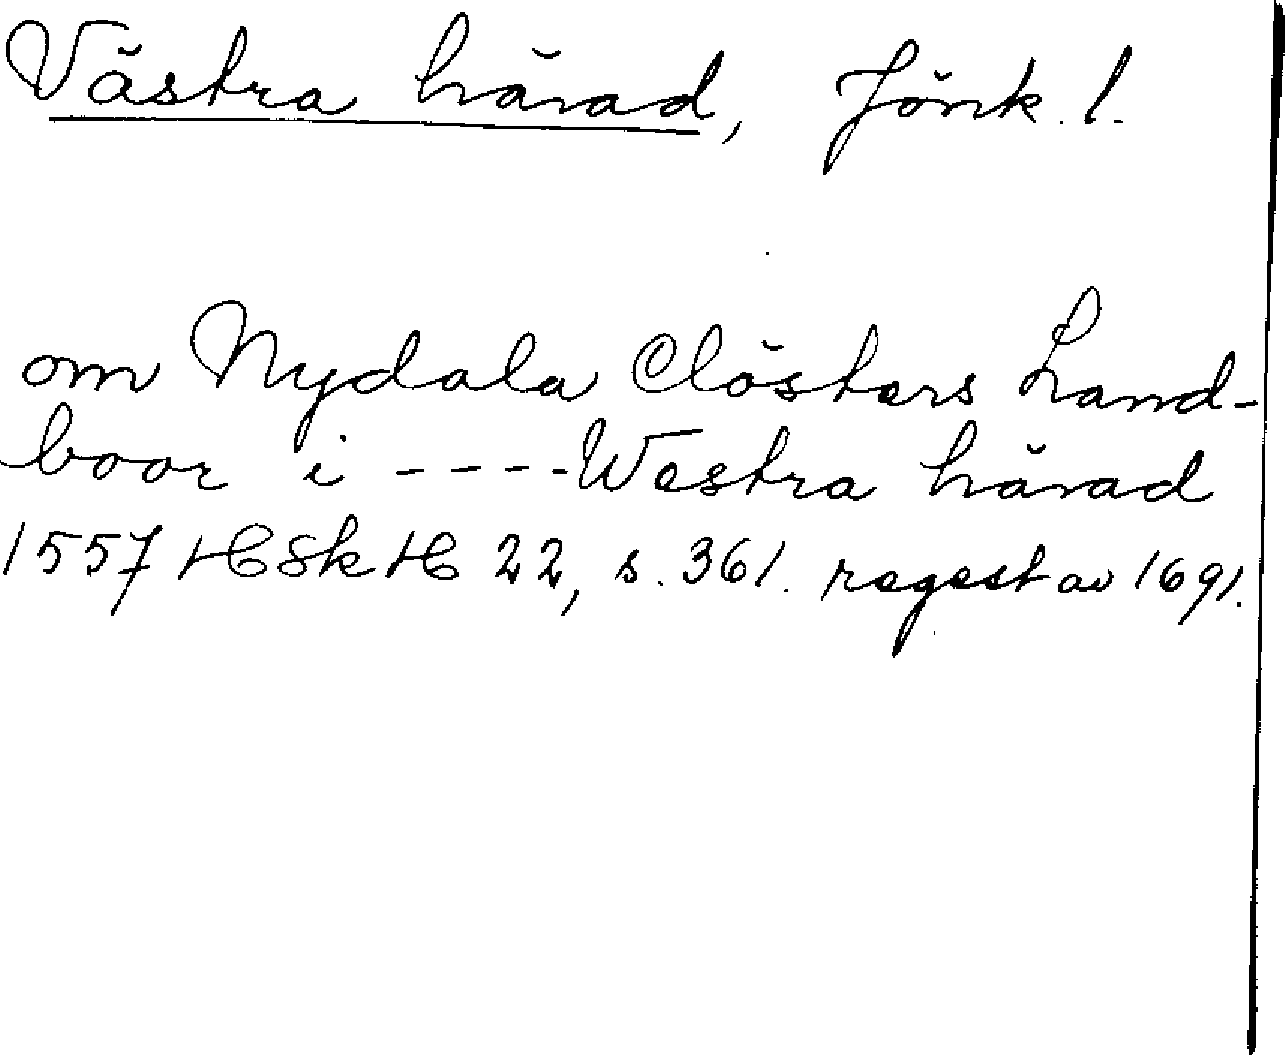 Västra härad, Jönk. l.
om Nydala Clösters Land-
boor i ---- Westra härad
1557 HSkH 22, s. 361. regest av 1691.